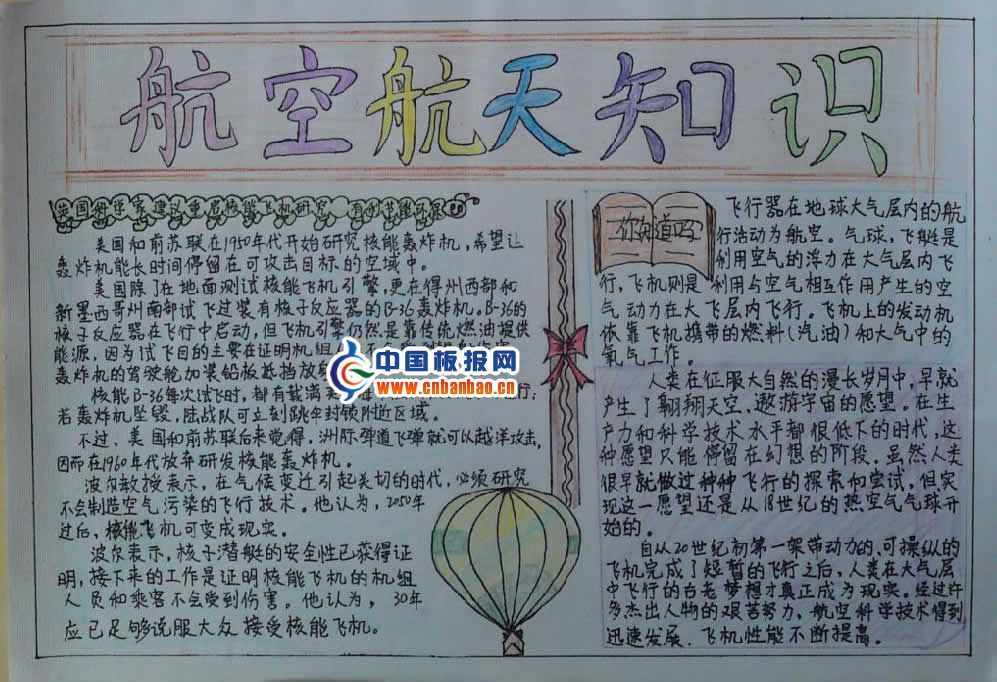 航空航天知识
英国科学家建议重启核能飞机研究 有利节能环保
美国和前苏联在1950年代开始研究核能轰炸机，希望让
轰炸机能长时间停留在可攻击目标的空域中。
美国除了在地面测试核能飞机引擎，更在得州西部和
新墨西哥州南部试飞过装有核子反应器的B-36轰炸机。B-36的
核子反应器在飞行中启动，但飞机引擎仍然是靠传统燃油提供
能源，因为试飞目的主要在证明机组
轰炸机的驾驶舱加装铅板抵挡放
核能B-36每次试飞时，都有载满 行；
若轰炸机坠毁，陆战队可立刻跳伞封锁附近区域。
不过、美国和前苏联后来觉得，洲际弹道飞弹就可以越洋攻击，
因而在1960年代放弃研发核能轰炸机。
波尔教授表示，在气候变迁引起关切的时代，必须研究
不会制造空气污染的飞行技术。他认为，2050年
过后，核能飞机可变成现实。
波尔表示，核子潜艇的安全性已获得证
明，接下来的工作是证明核能飞机的机组
人员和乘客不会受到伤害。他认为，30年
应已足够说服大众接受核能飞机。
中国板报网
www.cnbanbao.cn
你知道吗?
飞行器在地球大气层内的航
行活动为航空。气球，飞艇是
利用空气的浮力在大气层内飞
行，飞机则是利用与空气相互作用产生的空
气动力在大飞层内飞行。飞机上的发动机
依靠飞机携带的燃料(汽油)和大气中的
氧气工作。
人类在征服大自然的漫长岁月中，早就
产生了翱翔天空、遨游宇宙的愿望。在生
产力和科学技术水平都很低下的时代，这
种愿望只能停留在幻想的阶段。虽然人类
很早就做过种种飞行的探索和尝试，但实
现这一愿望还是从18世纪的热空气气球开
始的。
自从20世纪初第一架带动力的、可操纵的
飞机完成了短暂的飞行之后，人类在大气层
中飞行的古老梦想才真正成为现实。经过许
多杰出人物的艰苦努力，航空科学技术得到
迅速发展，飞机性能不断提高。